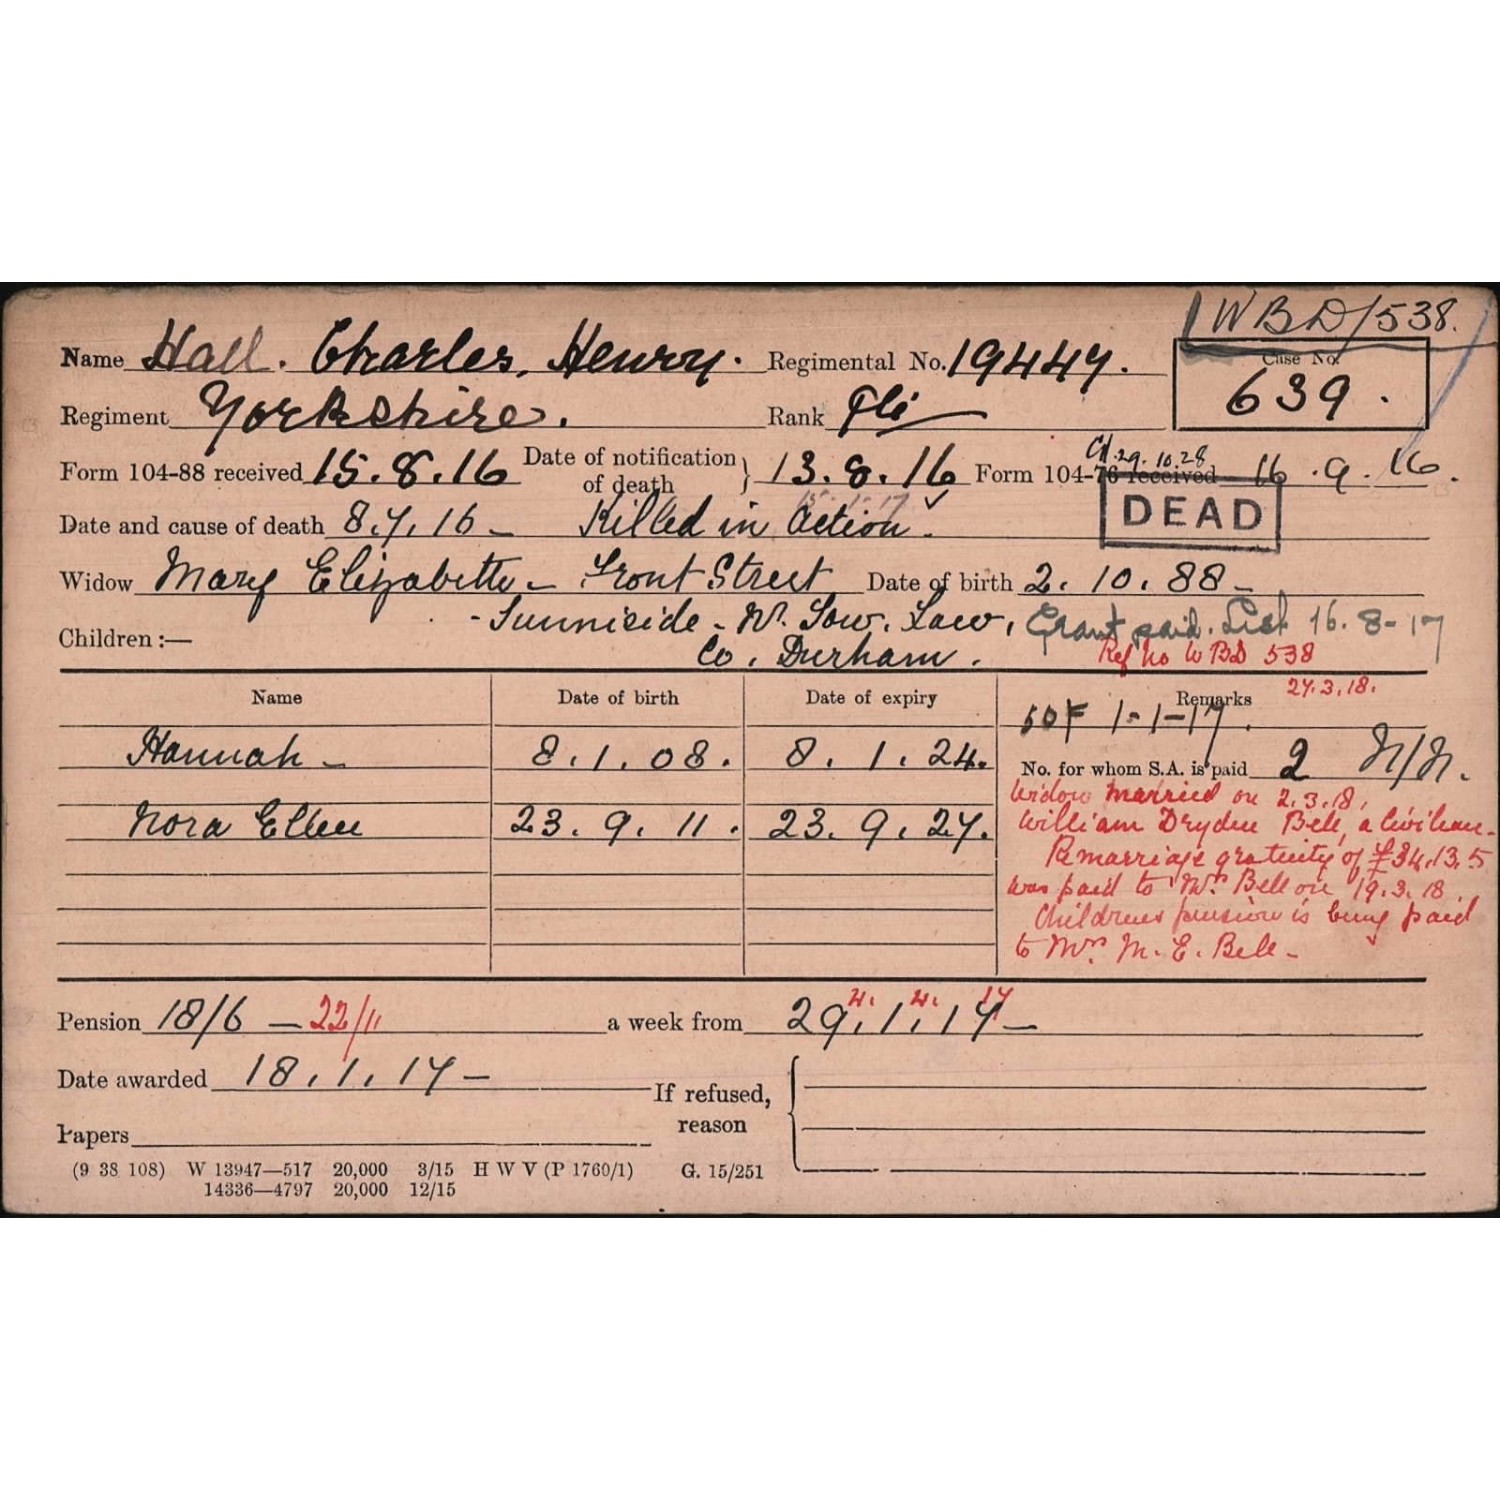 WBD/538.
Name Hall. Charles, Henry. Regimental No. 19447. Case No. 639.
Regiment Yorkshire. Rank Pte
Form 104-88 received 15.8.16 Date of notification of death } 13.8.16 Form 104-76 received 16.9.16.
29.10.28
DEAD
Date and cause of death 8.7.16 - Killed in Action.
Widow Mary Elizabeth - Front Street Date of birth 2.10.88 -
- Sunniside - Nr. Tow. Law, Grant paid. List 16.8-17
Children:— Co. Durham. Ref No WBD 538
27.3.18.
Name Date of birth Date of expiry Remarks
1-1-17.
Hannah - 8.1.08. 8.1.24. No. for whom S.A. is paid 2 N/N.
Nora Ellen 23.9.11. 23.9.27.
Widow married on 2.3.18,
William Dryden Bell, a Civilian.
Remarriage gratuity of £34.13.5
was paid to Mrs Bell on 19.3.18.
Childrens pension is being paid
to Mrs M. E. Bell -
Pension 18/6 - 22/11 a week from 29.1.17 - 4. 4. 17
Date awarded 18.1.17 -
If refused, reason
Papers
(9 38 108) W 13947—517 20,000 3/15 H W V (P 1760/1) G. 15/251
14336—4797 20,000 12/15